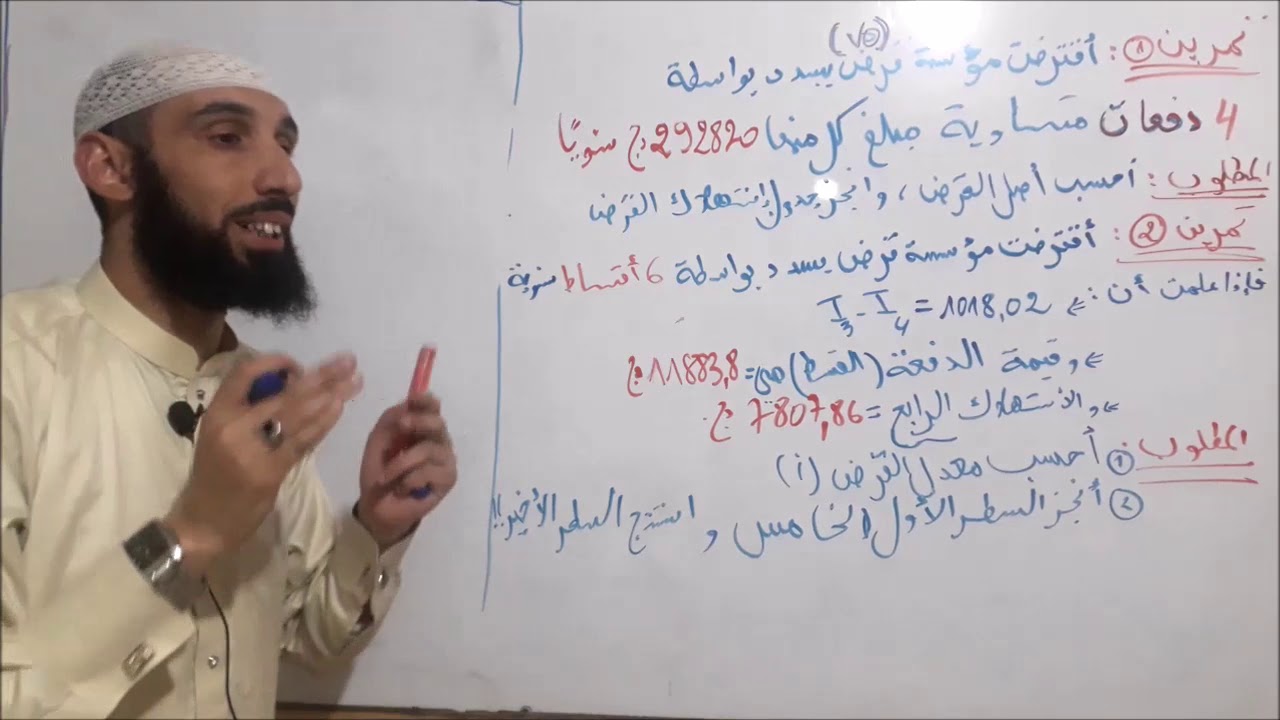 (V0)
تمرين ①: أقترضت مؤسسة قرض يسدد بواسطة
4 دفعات متساوية مبلغ كل منها 292820 دج سنويًا
المطلوب: أحسب أصل القرض، وانجز جدول إستهلاك القرض
تمرين ②: أقترضت مؤسسة قرض يسدد بواسطة 6 أقساط سنوية
فإذا علمت أن: I3 - I4 = 1018,02
وقيمة الدفعة (القسط) هي = 11883,8 دج
والاستهلاك الرابع = 7807,86 دج
المطلوب ① أحسب معدل القرض (i)
② أنجز السطر الأول الخامس و استنتج السطر الأخير!!